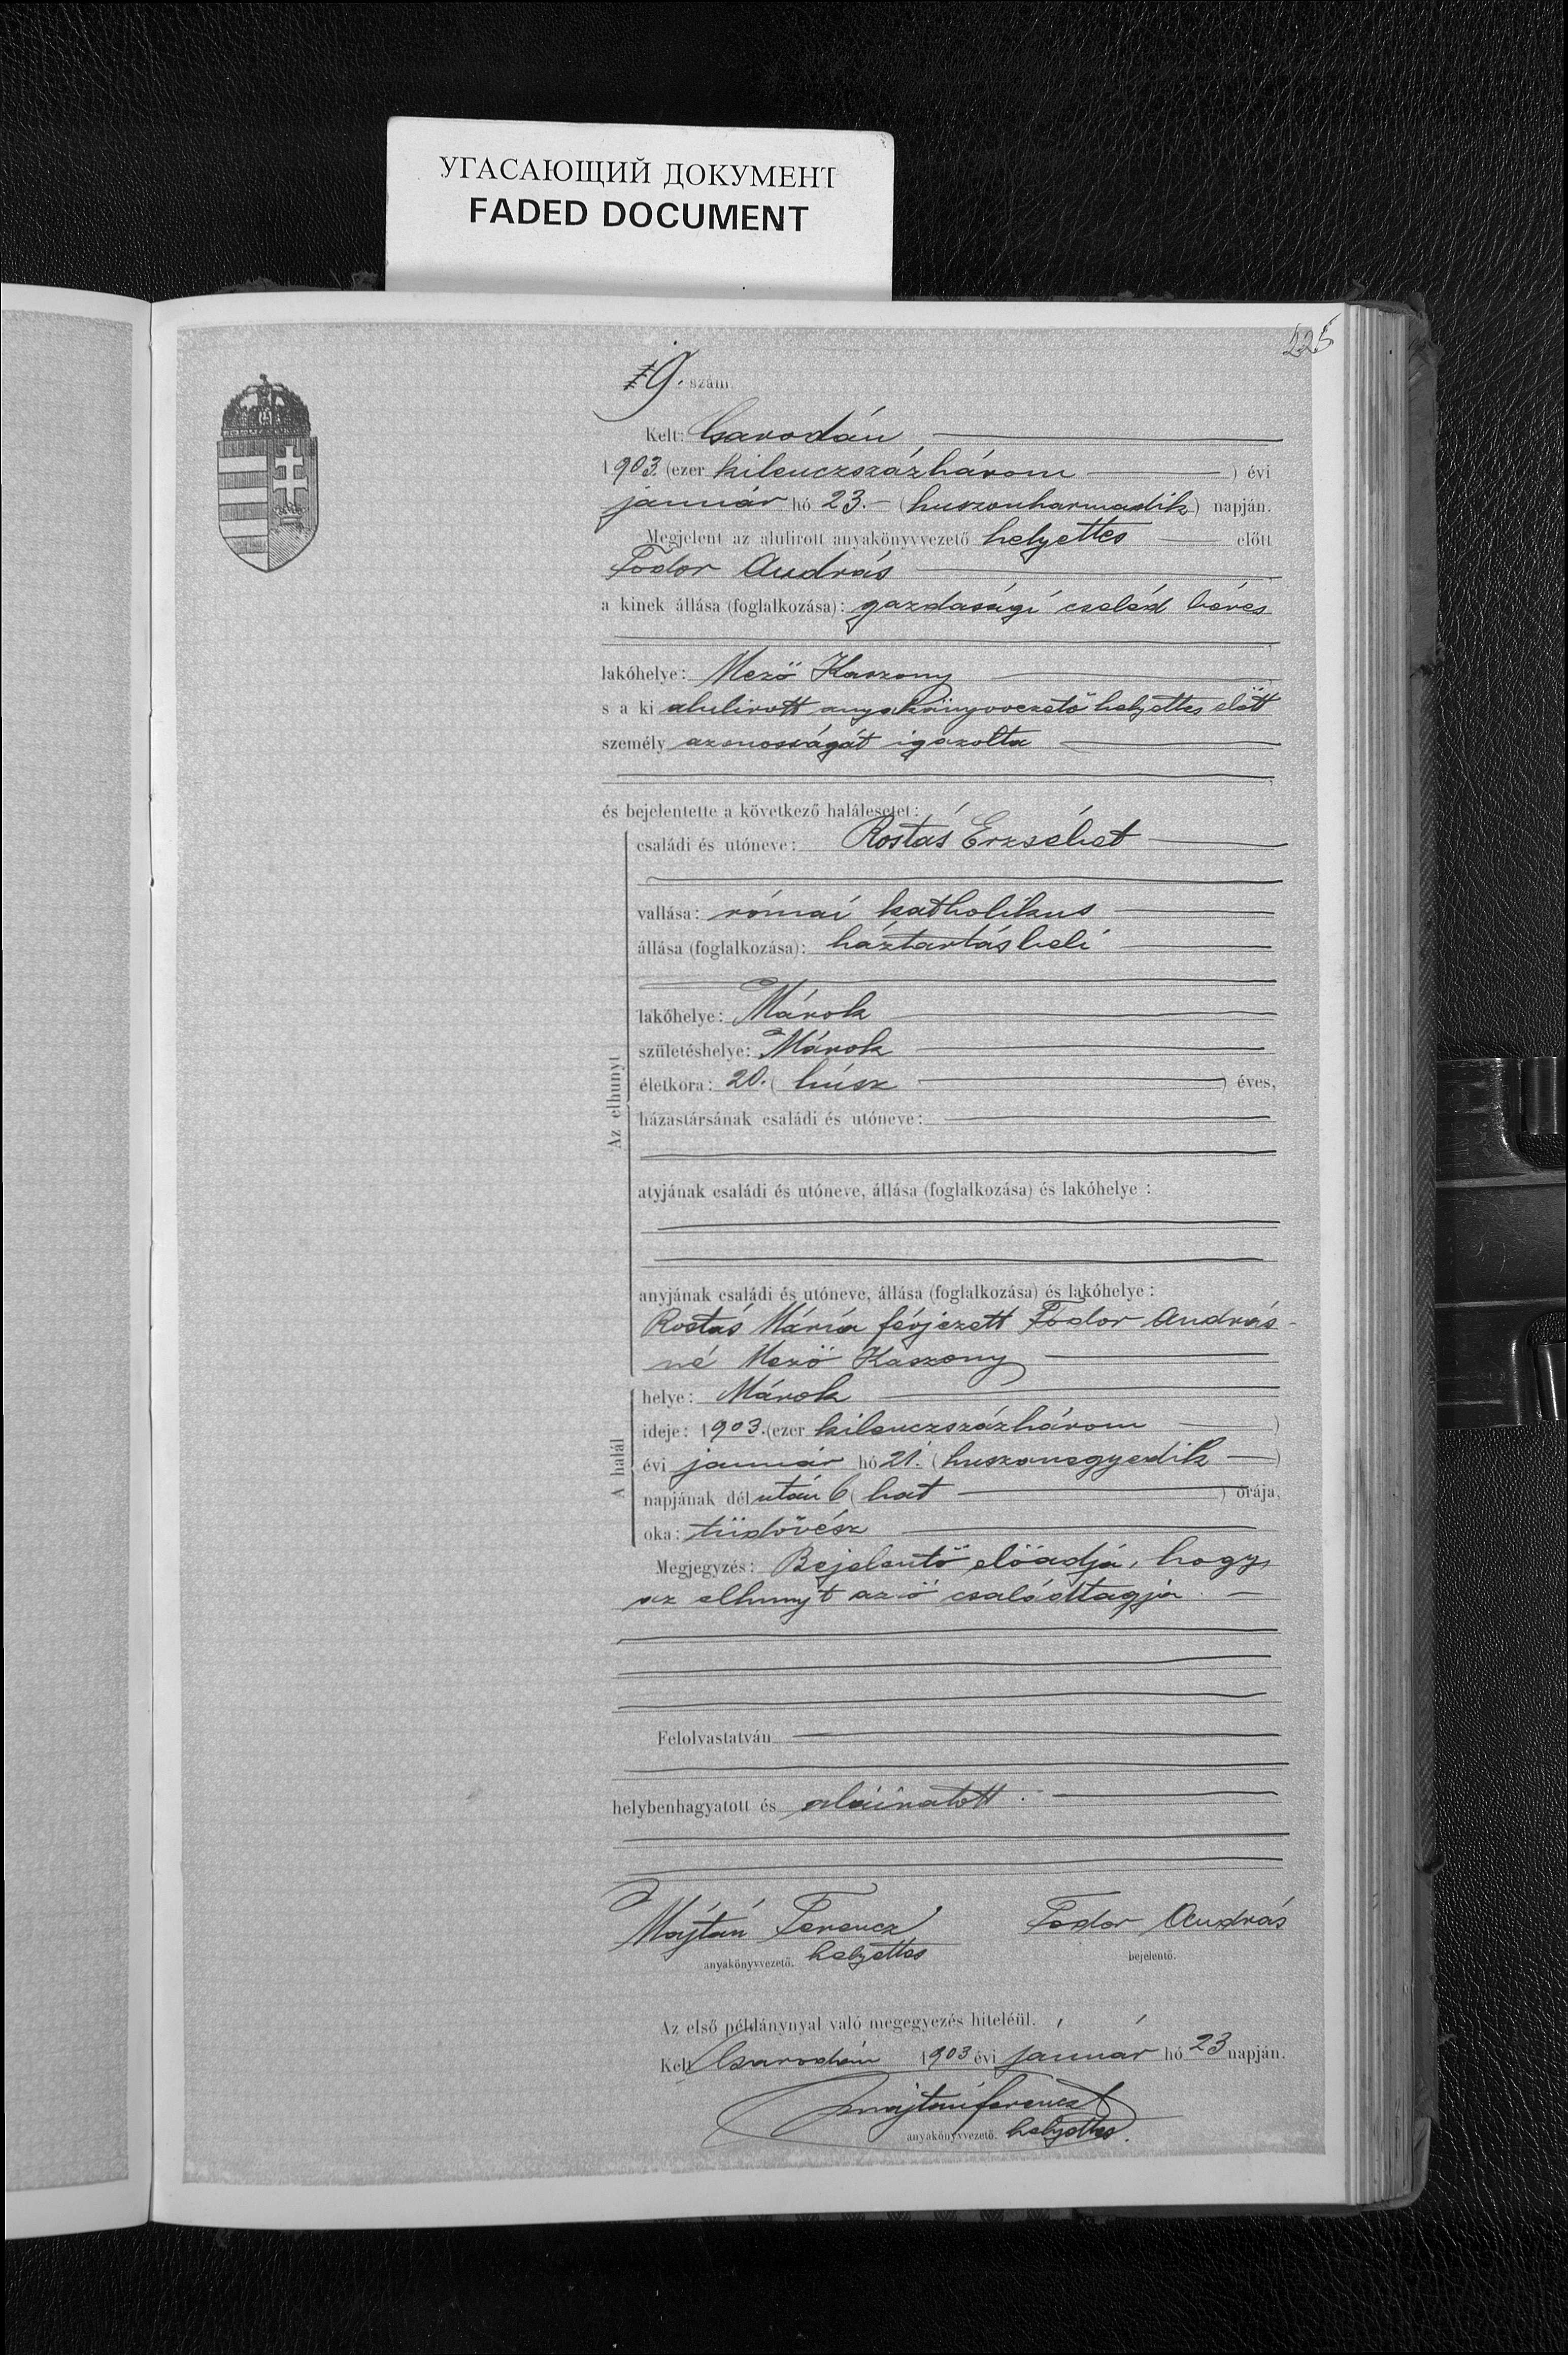 УГАСАЮЩИЙ ДОКУМЕНТ
FADED DOCUMENT
225
9. szám.
Kelt: Csarodán
1903. (ezer kilenczszázhárom) évi
január hó 23.- (huszonharmadik) napján.
Megjelent az alulirott anyakönyvvezető helyettes előtt
Fodor András
a kinek állása (foglalkozása): gazdasági cseléd béres
lakóhelye: Mező Kaszony
s a ki alulirott anyakönyvvezető helyettes előtt
személy azonosságát igazolta
és bejelentette a következő halálesetet:
Az elhunyt
családi és utóneve: Rostás Erzsébet
vallása: római katholikus
állása (foglalkozása): háztartásbeli
lakóhelye: Márok
születéshelye: Márok
életkora: 20. (húsz) éves,
házastársának családi és utóneve:
atyjának családi és utóneve, állása (foglalkozása) és lakóhelye:
anyjának családi és utóneve, állása (foglalkozása) és lakóhelye:
Rostás Mária férjezett Fodor András-
né Mező Kaszony
A halál
helye: Márok
ideje: 1903. (ezer kilenczszázhárom)
évi január hó 21. (huszonegyedik)
napjának dél után 6 (hat) órája.
oka: tüdővész
Megjegyzés: Bejelentő előadja, hogy
az elhunyt az ő családtagja.
Felolvastatván
helybenhagyatott és aláiratott.
Majtán Ferencz Fodor András
anyakönyvvezető. helyettes bejelentő.
Az első példánynyal való megegyezés hiteléül.
Kelt Csarodán 1903 évi január hó 23 napján.
Majtán ferencz
anyakönyvvezető. helyettes.